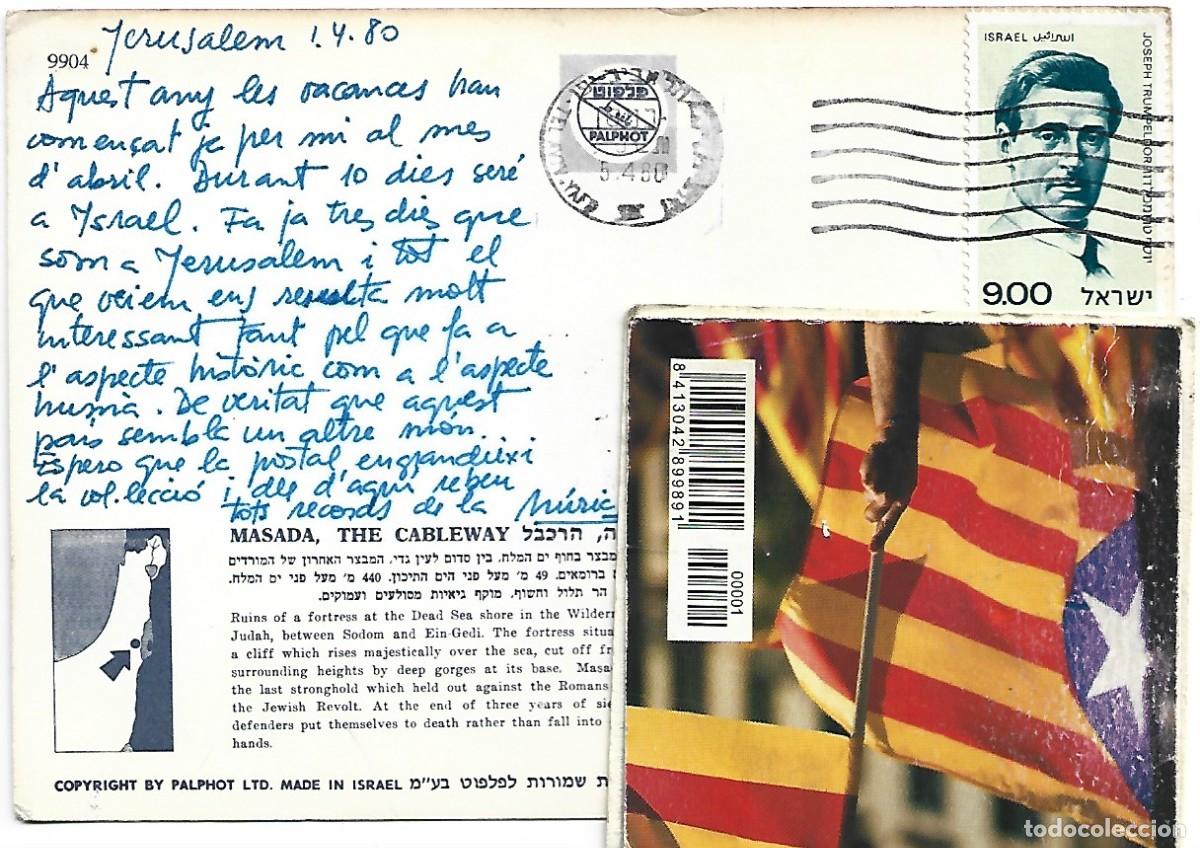 Jerusalem 1.4.80
9904
Aquest any les vacances han
començat ja per mi al mes
d'abril. Durant 10 dies seré
a Israel. Fa ja tres dies que
som a Jerusalem i tot el
que veiem ens resulta molt
interessant tant pel que fa a
l'aspecte històric com a l'aspecte
humà. De veritat que aquest
país sembla un altre món.
Espero que la postal engrandeixi
la col.lecció i des d'aquí rebeu
tots records de la Núria
פלפוט
PALPHOT
TEL AVIV-YAFO
5.4.80
ISRAEL اسرائيل
JOSEPH TRUMPELDOR
9.00 ישראל
MASADA, THE CABLEWAY ה, הרכבל
מבצר בחוף ים המלח, בין סדום לעין גדי. המבצר האחרון של המורדים
ברומאים. 49 מ׳ מעל פני הים התיכון. 440 מ׳ מעל פני ים המלח.
הר תלול וחשוף, מוקף גיאיות מסולעים ועמוקים.
Ruins of a fortress at the Dead Sea shore in the Wilder
Judah, between Sodom and Ein-Gedi. The fortress situa
a cliff which rises majestically over the sea, cut off fr
surrounding heights by deep gorges at its base. Masa
the last stronghold which held out against the Romans
the Jewish Revolt. At the end of three years of sie
defenders put themselves to death rather than fall into
hands.
COPYRIGHT BY PALPHOT LTD. MADE IN ISRAEL ת שמורות לפלפוט בע״מ
8 413042 899891
00001
todocoleccion